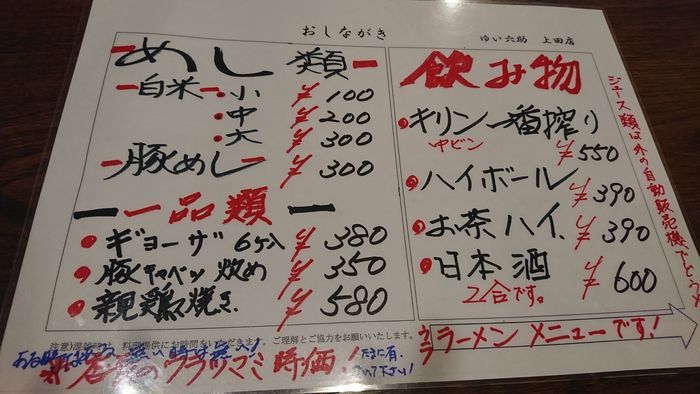 おしながき
ゆい六助 上田店
めし類
白米 小 ¥100
中 ¥200
大 ¥300
豚めし ¥300
一品類
ギョーザ 6ケ入 ¥380
豚キャベツ炒め ¥350
親鶏焼き ¥580
飲み物
キリン一番搾り
中ビン ¥550
ハイボール ¥390
お茶ハイ ¥390
日本酒 ¥600
2合です。
ジュース類は外の自動販売機でどうぞ
ウララーメンメニューです!
料理提供にお時間をいただきます。ご理解とご協力をお願いいたします。
ウラツマミ 時価!
たまに有